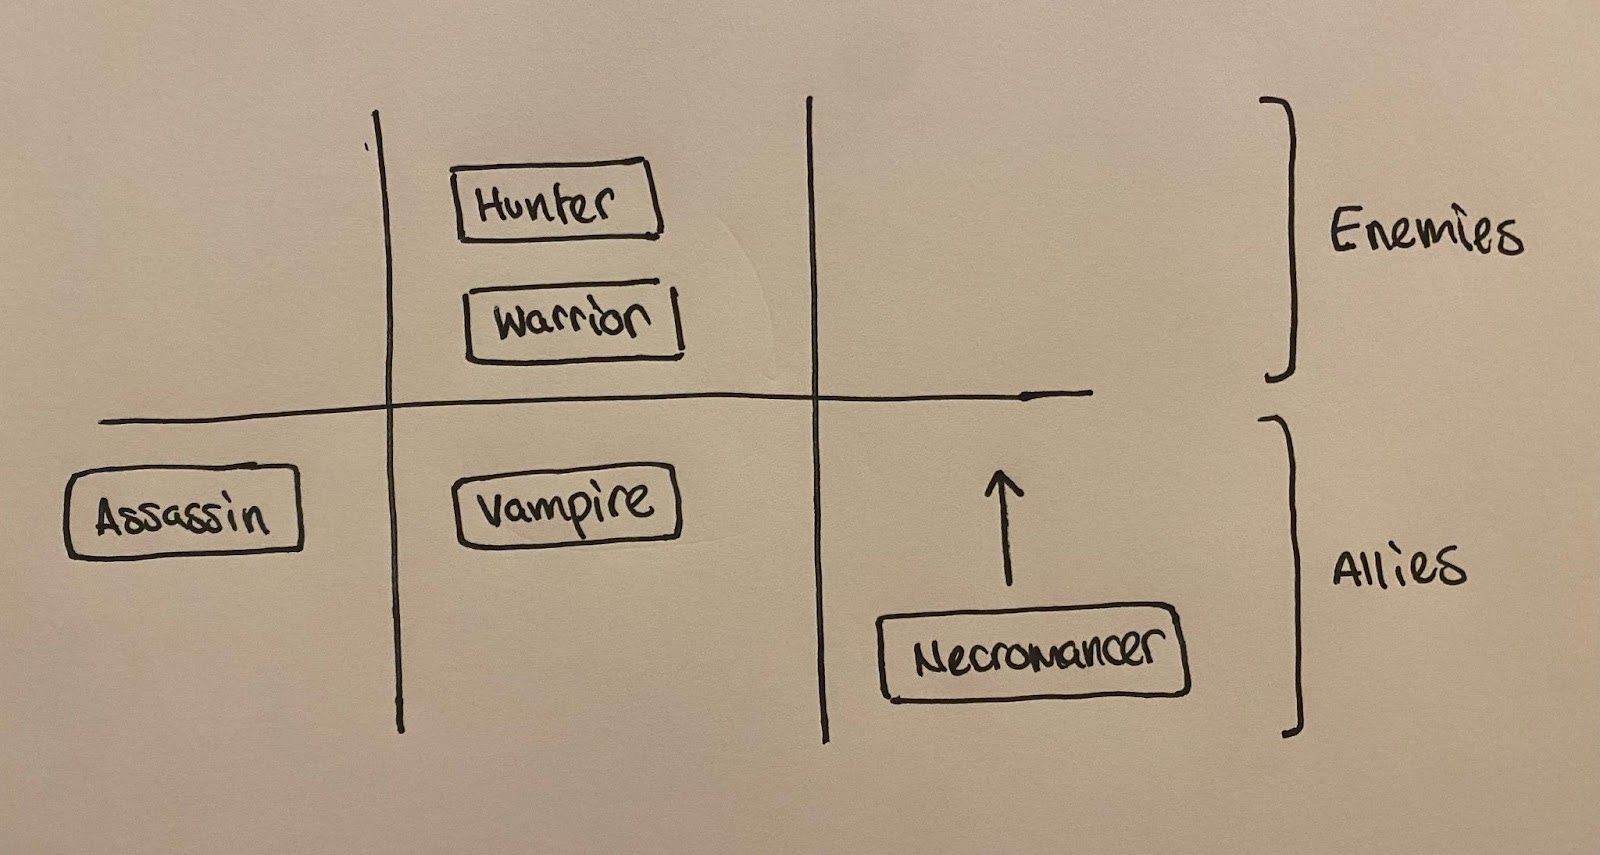 Hunter
Warrior
Enemies
Assassin
Vampire
Necromancer
Allies